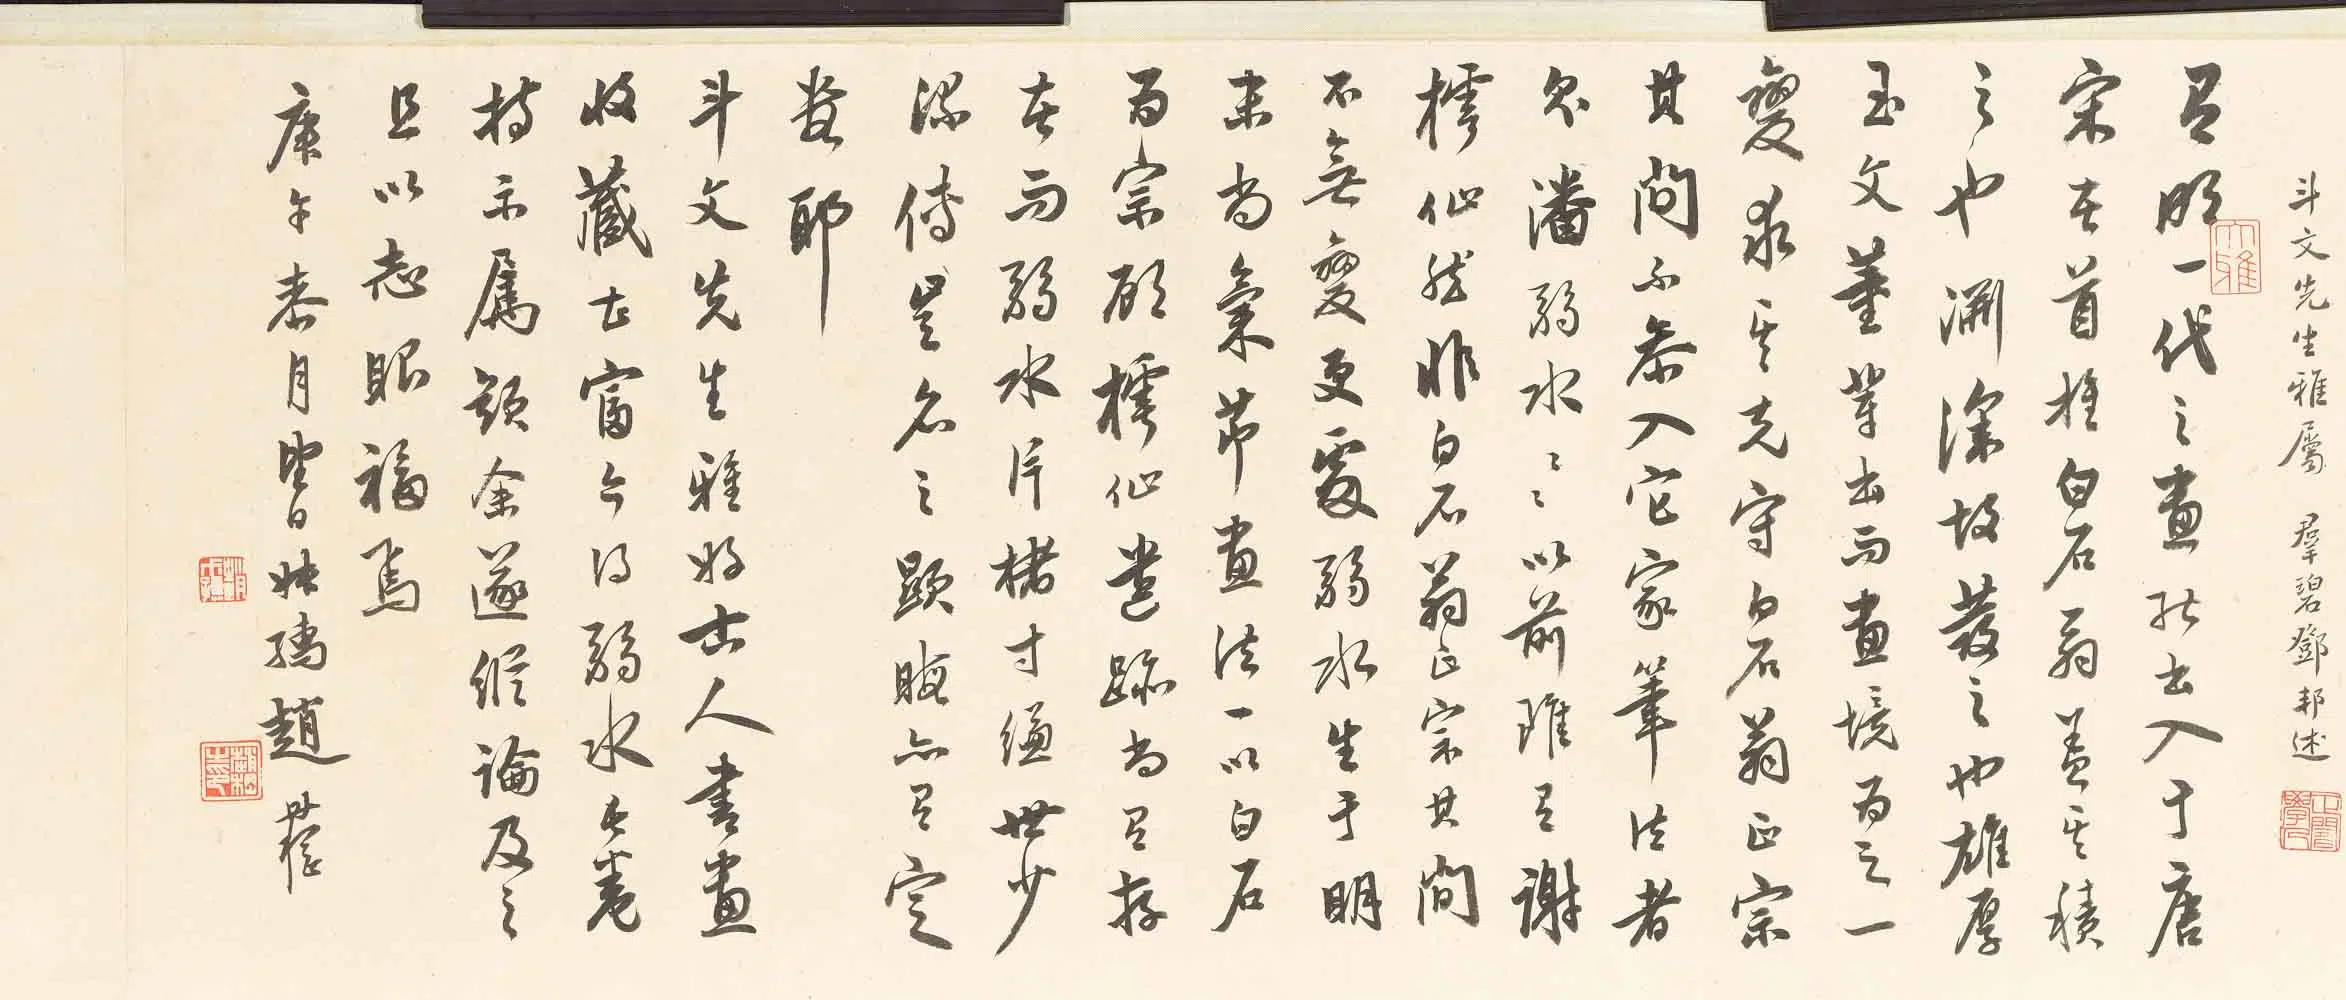 斗文先生雅屬　羣碧鄧邦述
有明一代之畫能出入于唐
宋者首推白石翁蓋其積
之也淵深故發之也雄厚
至文董輩出而畫境為之一
變求其克守白石翁正宗
其間不參入它家筆法者
久潘弱水弱水以前雖有謝
樗仙然非白石翁正宗其間
不無變更處弱水生于明
末尚氣節畫法一以白石
為宗顧樗仙遺跡尚有存
者而弱水片楮寸縑世少
流傳豈名之顯晦亦有定
數耶
斗文先生雅好古人書畫
收藏甚富今得弱水長卷
持示屬題余遂縱論及之
且以志眼福焉
庚午泰月望日 趙
大雅